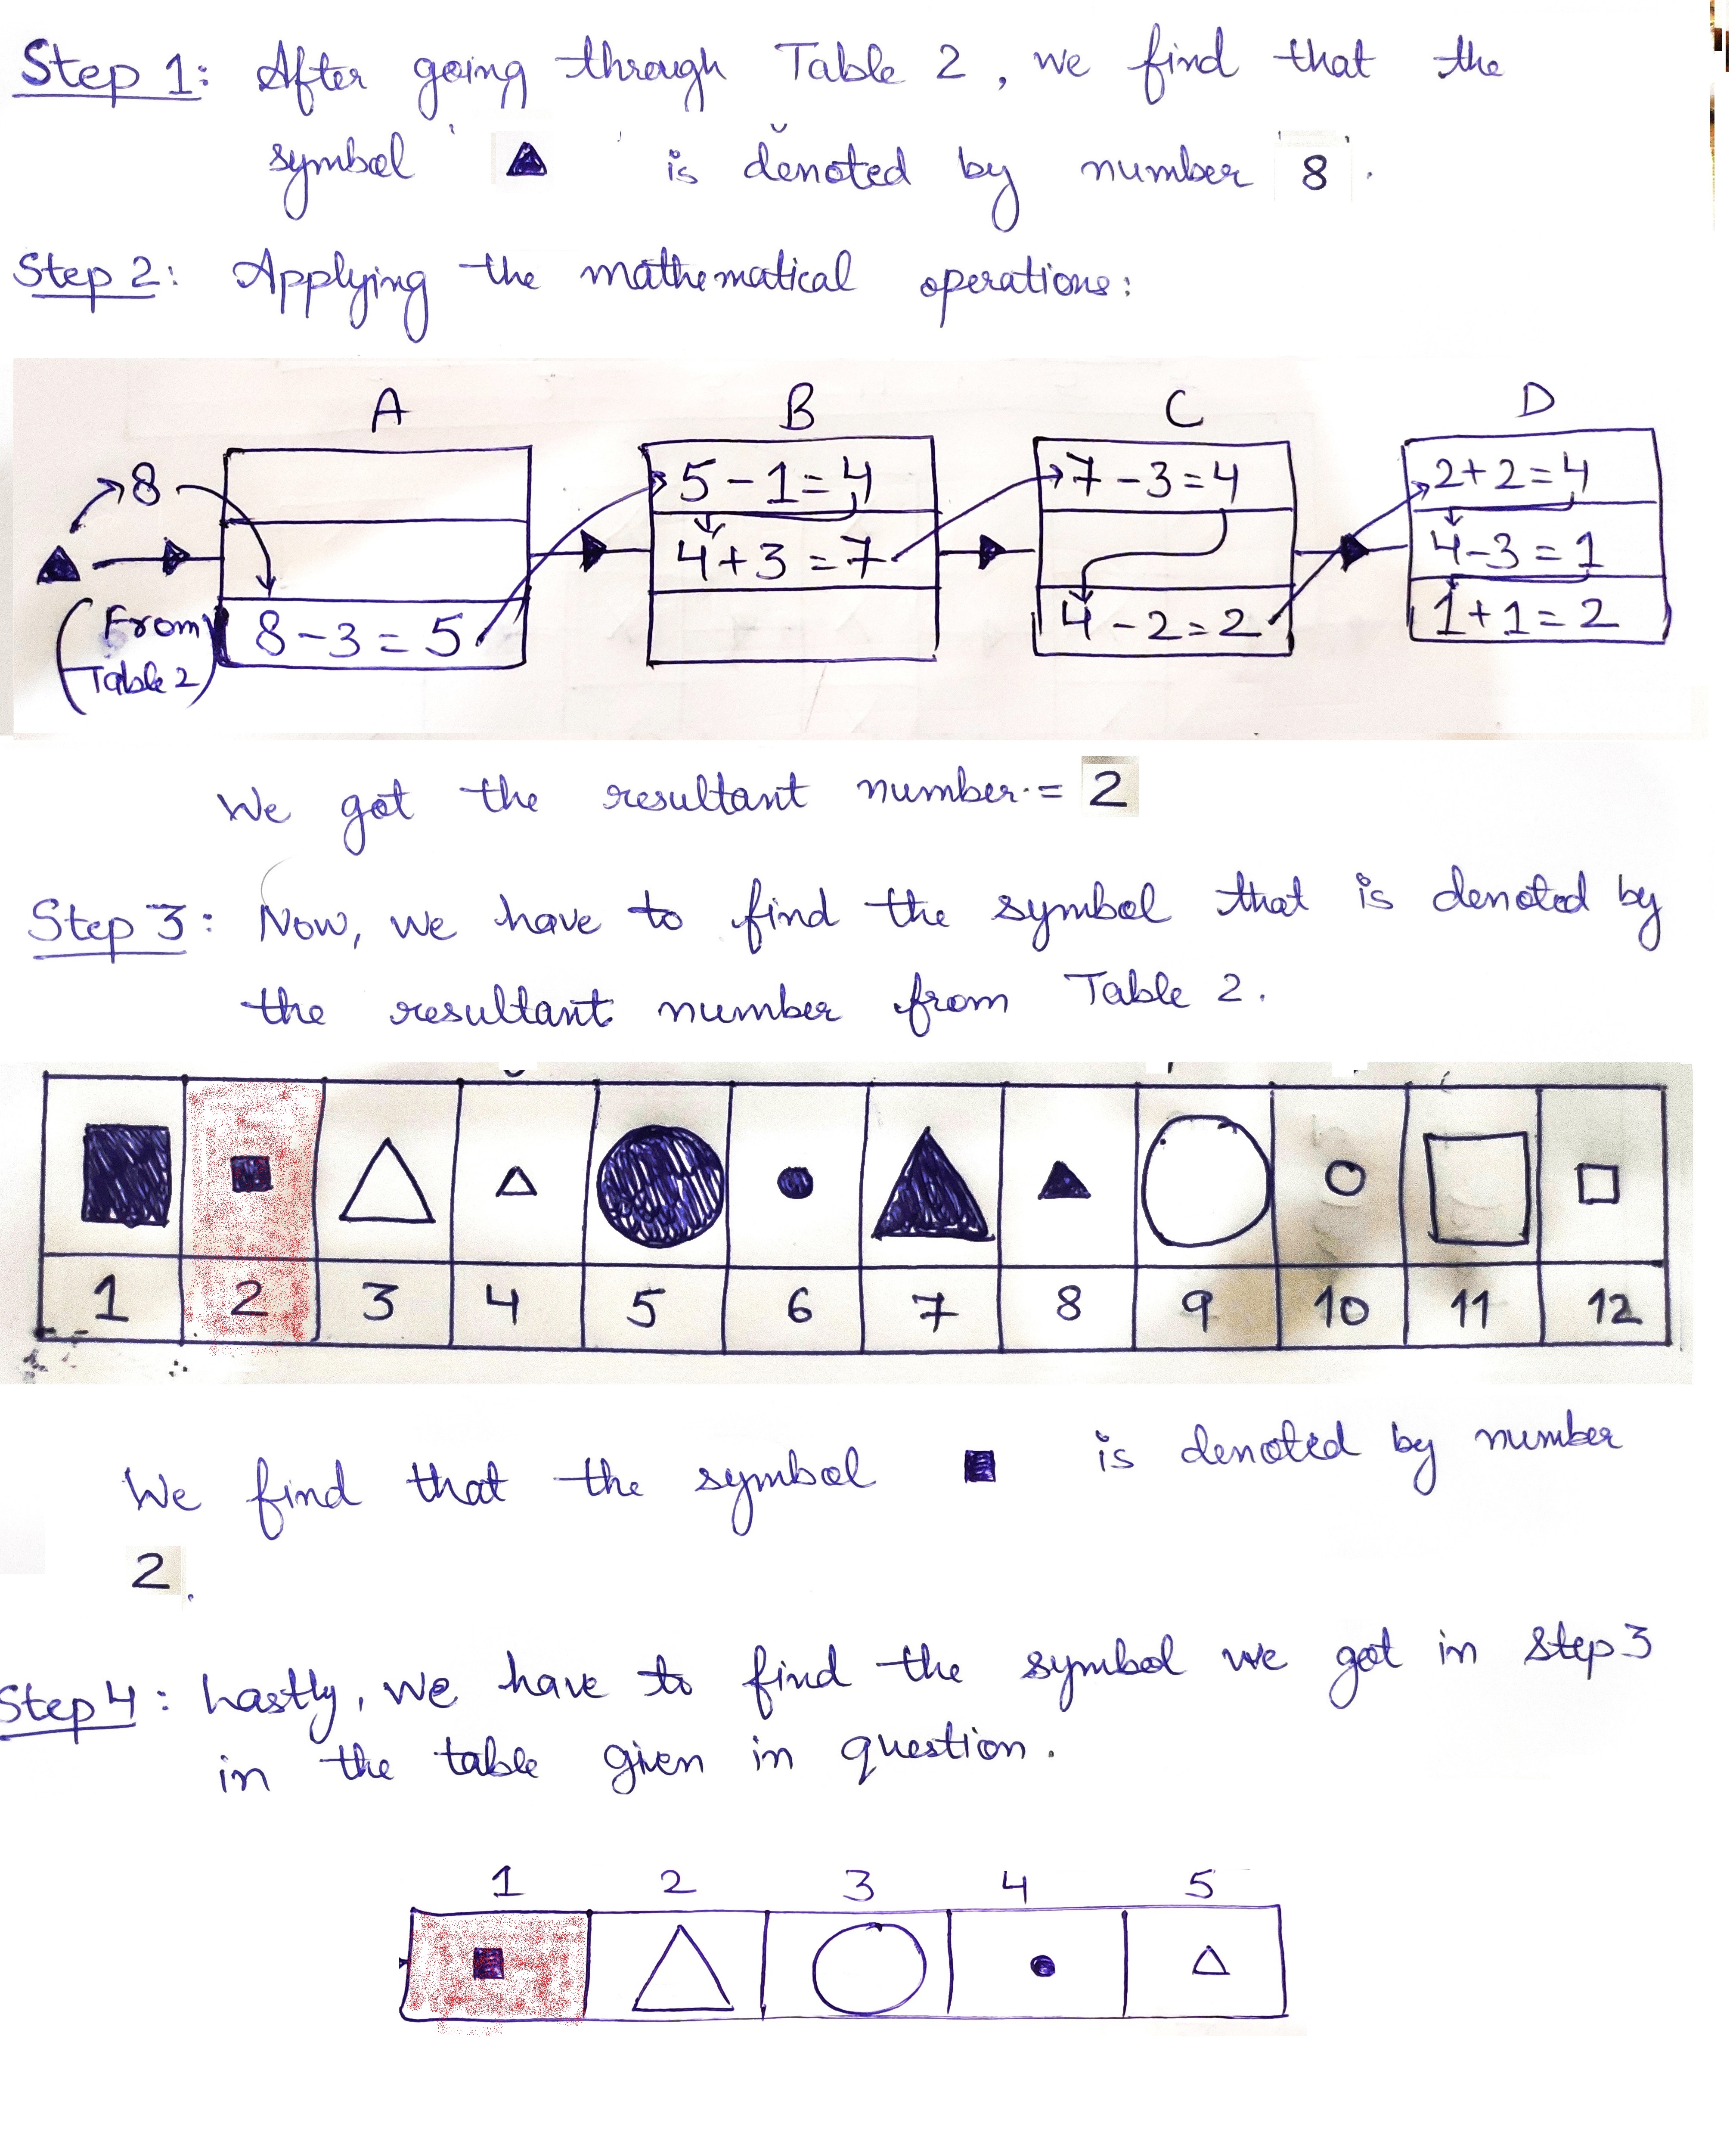 Step 1: After going through Table 2, we find that the
symbol ' ▲ ' is denoted by number 8.
Step 2: Applying the mathematical operations:
A B C D
8 5-1=4 7-3=4 2+2=4
4+3=7 4-3=1
(From Table 2) 8-3=5 4-2=2 1+1=2
We got the resultant number = 2
Step 3: Now, we have to find the symbol that is denoted by
the resultant number from Table 2.
1 2 3 4 5 6 7 8 9 10 11 12
We find that the symbol ■ is denoted by number
2.
Step 4: Lastly, we have to find the symbol we got in step 3
in the table given in question.
1 2 3 4 5